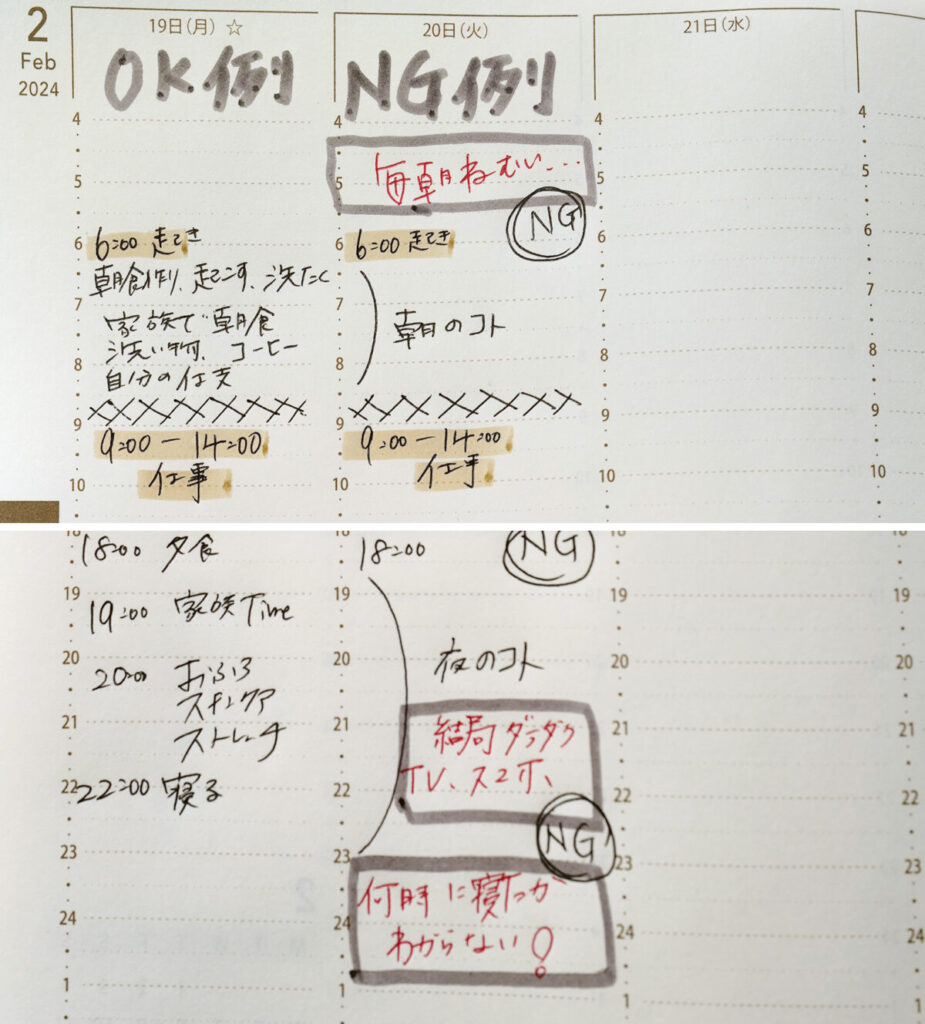 2
Feb
2024
19日(月) ☆
OK例
4
5
6
6:00 起き
朝食作り、起こす、洗たく
7
家族で朝食
洗い物、コーヒー
8
自分の仕度
9
9:00 − 14:00
仕事
10
20日(火)
NG例
4
毎朝ねむい…
5
NG
6
6:00 起き
7
朝のコト
8
9
9:00 − 14:00
仕事
10
21日(水)
4
5
6
7
8
9
10
4
5
6
7
8
9
10
18:00 夕食
19
19:00 家族Time
20
20:00 おふろ
スキンケア
21
ストレッチ
22
22:00 寝る
23
24
1
18:00
NG
19
20
夜のコト
21
結局ダラダラ
TV、スマホ、
22
NG
23
何時に寝たか
24
わからない!
1
18
19
20
21
22
23
24
1
18
19
20
21
22
23
24